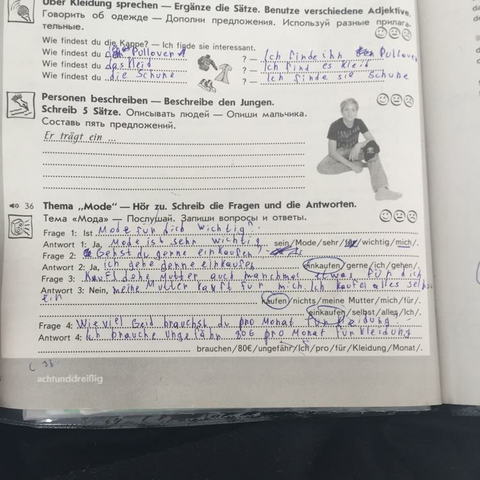 Über Kleidung sprechen — Ergänze die Sätze. Benutze verschiedene Adjektive.
Говорить об одежде — Дополни предложения. Используй разные прилага-
тельные.
Wie findest du die Kappe? — Ich finde sie interessant.
Wie findest du Pullover ? — Ich finde ihn Pullover
Wie findest du das Kleid ? — Ich find es Kleid
Wie findest du die Schuhe ? — Ich finde sie Schuhe
Personen beschreiben — Beschreibe den Jungen.
Schreib 5 Sätze. Описывать людей — Опиши мальчика.
Составь пять предложений.
Er trägt ein ...
36 Thema „Mode" — Hör zu. Schreib die Fragen und die Antworten.
Тема «Мода» — Послушай. Запиши вопросы и ответы.
Frage 1: Ist Mode für dich wichtig?
Antwort 1: Ja, Mode ist sehr wichtig sein/Mode/sehr/ /wichtig/mich/.
Frage 2: Gehst du gerne einkaufen
Antwort 2: Ja, ich gehe gerne einkaufen einkaufen/gerne/ich/gehen/.
Frage 3: Kauft deine Mutter auch manchmal etwas für dich
Antwort 3: Nein, meine Mutter kauft für mich. Ich kaufe alles selbs
ein
kaufen/nichts/meine Mutter/mich/für/.
einkaufen/selbst/alles/Ich/.
Frage 4: Wie viel Geld brauchst du pro Monat für Kleidung
Antwort 4: Ich brauche ungefähr 80€ pro Monat für Kleidung
brauchen/80€/ungefähr/Ich/pro/für/Kleidung/Monat/.
38
achtunddreißig